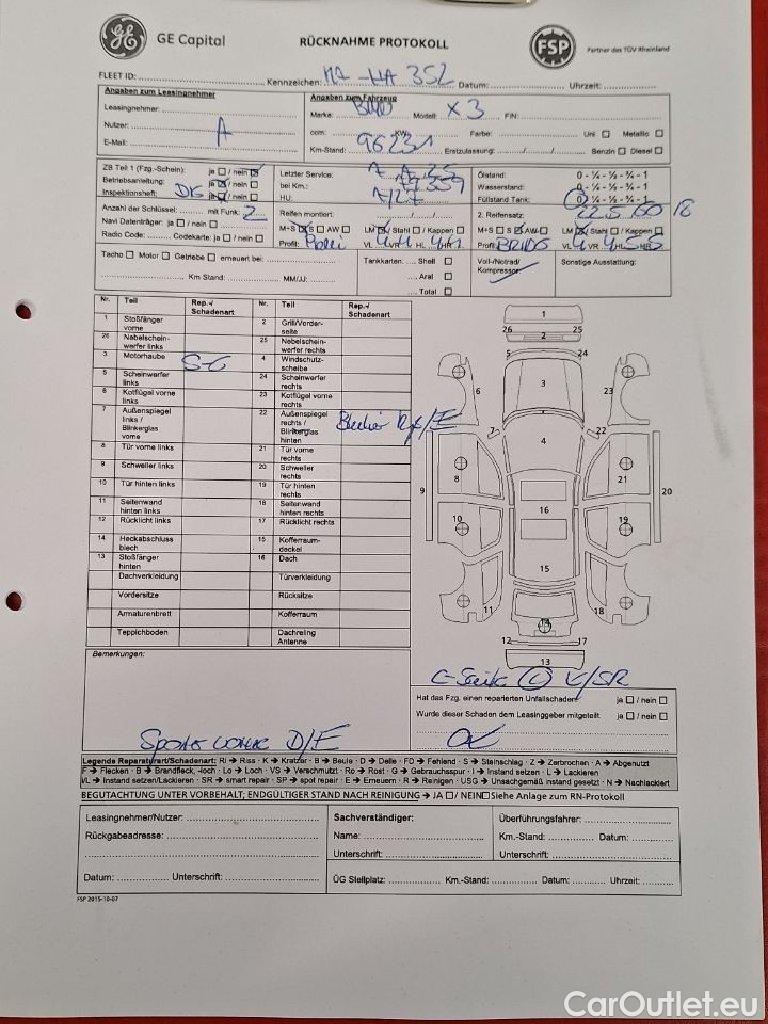 GE Capital
RÜCKNAHME PROTOKOLL
FSP
Partner des TÜV Rheinland
FLEET ID: Kennzeichen: MA-HA 352 Datum: Uhrzeit:
Angaben zum Leasingnehmer
Leasingnehmer:
Nutzer: A
E-Mail:
Angaben zum Fahrzeug
Marke: BMW Modell: X3 FIN:
ccm: KW: Farbe: Uni Metallic
Km-Stand: 96231 Erstzulassung: Benzin Diesel
ZB Teil 1 (Fzg.-Schein): ja / nein
Betriebsanleitung: ja / nein
Inspektionsheft: ja / nein
Anzahl der Schlüssel: mit Funk: 2
Navi Datenträger: ja / nein
Radio Code: Codekarte: ja / nein
Letzter Service:
bei Km.:
HU: 7/27
Reifen montiert:
M+S S AW LM Stahl / Kappen
Profil: VL VR HL HR
Ölstand: 0 - ¼ - ½ - ¾ - 1
Wasserstand: 0 - ¼ - ½ - ¾ - 1
Füllstand Tank: 0 - ¼ - ½ - ¾ - 1
2. Reifensatz: 225 60 18
M+S S AW LM Stahl / Kappen
Profil: VL VR HL HR
Tacho Motor Getriebe erneuert bei:
Km Stand: MM/JJ:
Tankkarten: Shell
Aral
Total
Voll-/Notrad/
Kompressor:
Sonstige Ausstattung:
Nr. Teil Rep.-/ Schadenart Nr. Teil Rep.-/ Schadenart
1 Stoßfänger vorne 2 Grill/Vorderseite
26 Nebelscheinwerfer links 25 Nebelscheinwerfer rechts
3 Motorhaube S-G 4 Windschutzscheibe
5 Scheinwerfer links 24 Scheinwerfer rechts
6 Kotflügel vorne links 23 Kotflügel vorne rechts
7 Außenspiegel links / Blinkerglas vorne 22 Außenspiegel rechts / Blinkerglas hinten
8 Tür vorne links 21 Tür vorne rechts
9 Schweller links 20 Schweller rechts
10 Tür hinten links 19 Tür hinten rechts
11 Seitenwand hinten links 18 Seitenwand hinten rechts
12 Rücklicht links 17 Rücklicht rechts
14 Heckabschluss blech 15 Kofferraumdeckel
13 Stoßfänger hinten 16 Dach
Dachverkleidung Türverkleidung
Vordersitze Rücksitze
Armaturenbrett Kofferraum
Teppichboden Dachreling Antenne
1
26 25
2
5 24
6 3 23
7 22
4
8 21
9 20
10 16 19
15
11 18
14
12 17
13
Bemerkungen:
Hat das Fzg. einen reparierten Unfallschaden: ja / nein
Wurde dieser Schaden dem Leasinggeber mitgeteilt: ja / nein
Legende Reparaturart/Schadenart: RI → Riss · K → Kratzer · B → Beule · D → Delle · FD → Fehlend · S → Steinschlag · Z → Zerbrochen · A → Abgenutzt
F → Flecken · B → Brandfleck, -loch · Lo → Loch · VS → Verschmutzt · Ro → Rost · G → Gebrauchsspur · I → Instand setzen · L → Lackieren
I/L → Instand setzen/Lackieren · SR → smart repair · SP → spot repair · E → Erneuern · R → Reinigen · USG → Unsachgemäß instand gesetzt · N → Nachlackiert
BEGUTACHTUNG UNTER VORBEHALT; ENDGÜLTIGER STAND NACH REINIGUNG → JA / NEIN Siehe Anlage zum RN-Protokoll
Leasingnehmer/Nutzer:
Rückgabeadresse:
Datum: Unterschrift:
Sachverständiger:
Name:
Unterschrift:
Überführungsfahrer:
Km.-Stand: Datum:
Unterschrift:
ÜG Stellplatz: Km.-Stand: Datum: Uhrzeit:
FSP 2015-10-07
CarOutlet.eu